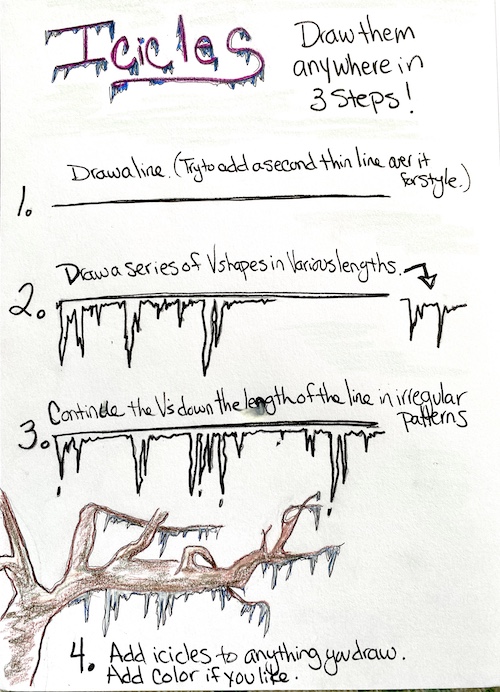 Icicles
Draw them
anywhere in
3 Steps!
1. Draw a line. (Try to add a second thin line over it
for style.)
2. Draw a series of V shapes in Various lengths.
3. Continue the V's down the length of the line in irregular
patterns
4. Add icicles to anything you draw.
Add Color if you like.